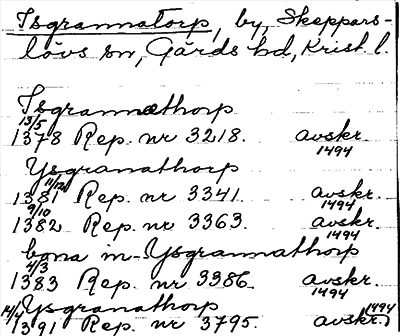 Isgrannatorp, by, Skeppars-
lövs sn, Gärds hd, Krist. l.
Isgrannathorp
13/5
1378 Rep. nr 3218. avskr.
1494
Ysgrannathorp
11/12
1381 Rep. nr 3341. avskr.
9/10 1494
1382 Rep. nr 3363. avskr.
1494
bona in Ysgrannathorp
4/3
1383 Rep. nr 3386. avskr.
1494
Ysgranathorp
14/4 1391 Rep. nr 3795. avskr. 1494